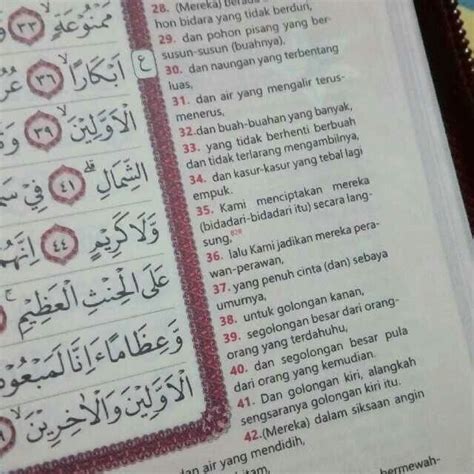 مَمْنُوْعَةٍۙ ٣٣
اَبْكَارًاۙ ٣٦
ع
الْاَوَّلِيْنَۙ ٣٩
الشِّمَالِۗ ٤١ فِيْ
وَّلَا كَرِيْمٍ ٤٤
عَلَى الْحِنْثِ الْعَظِيْمِ
وَّعِظَامًا ءَاِنَّا
الْاَوَّلِيْنَ وَالْاٰخِرِيْنَ
28. (Mereka) berada
hon bidara yang tidak berduri,
29. dan pohon pisang yang ber-
susun-susun (buahnya).
30. dan naungan yang terbentang
luas,
31. dan air yang mengalir terus-
menerus,
32.dan buah-buahan yang banyak,
33. yang tidak berhenti berbuah
dan tidak terlarang mengambilnya,
34. dan kasur-kasur yang tebal lagi
empuk.
35. Kami menciptakan mereka
(bidadari-bidadari itu) secara lang-
sung,
36. lalu Kami jadikan mereka pera-
wan-perawan,
37. yang penuh cinta (dan) sebaya
umurnya,
38. untuk golongan kanan,
39. segolongan besar dari orang-
orang yang terdahulu,
40. dan segolongan besar pula
dari orang yang kemudian.
41. Dan golongan kiri, alangkah
sengsaranya golongan kiri itu.
42.(Mereka) dalam siksaan angin
an air yang mendidih,
bermewah-